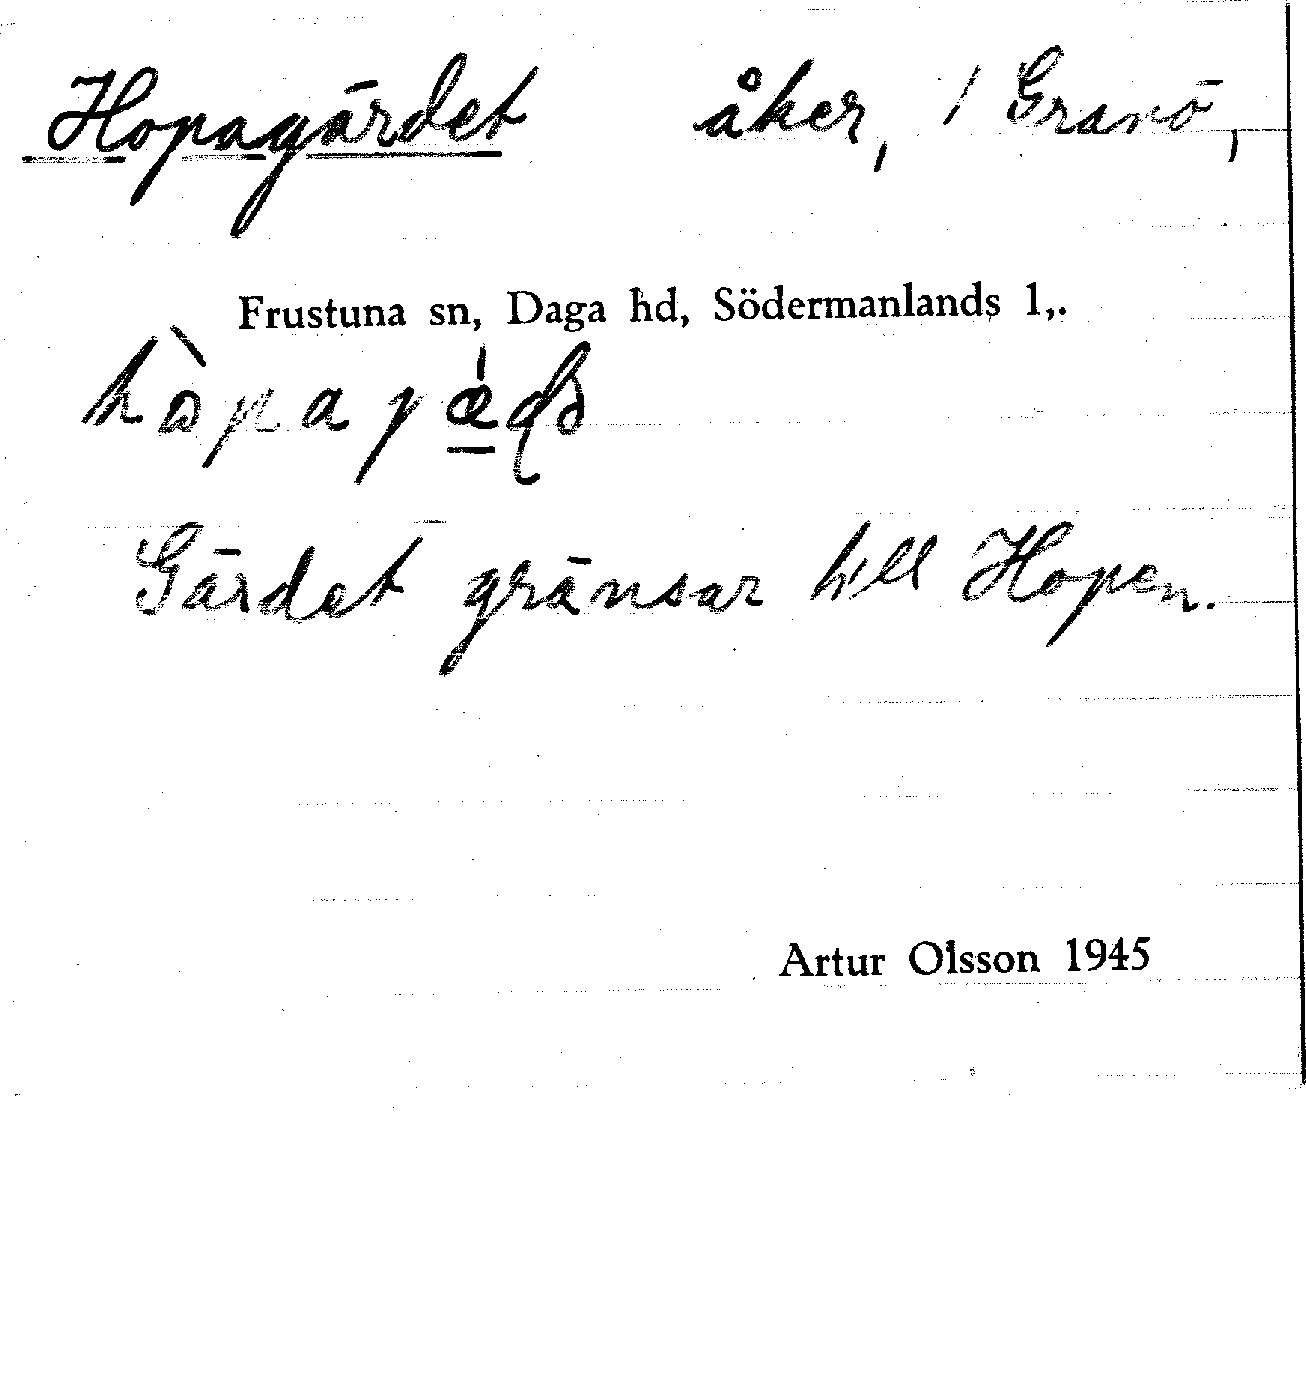 Hopagärdet åker, / Granö,
Frustuna sn, Daga hd, Södermanlands l,.
Gärdet gränsar till Hopen.
Artur Olsson 1945